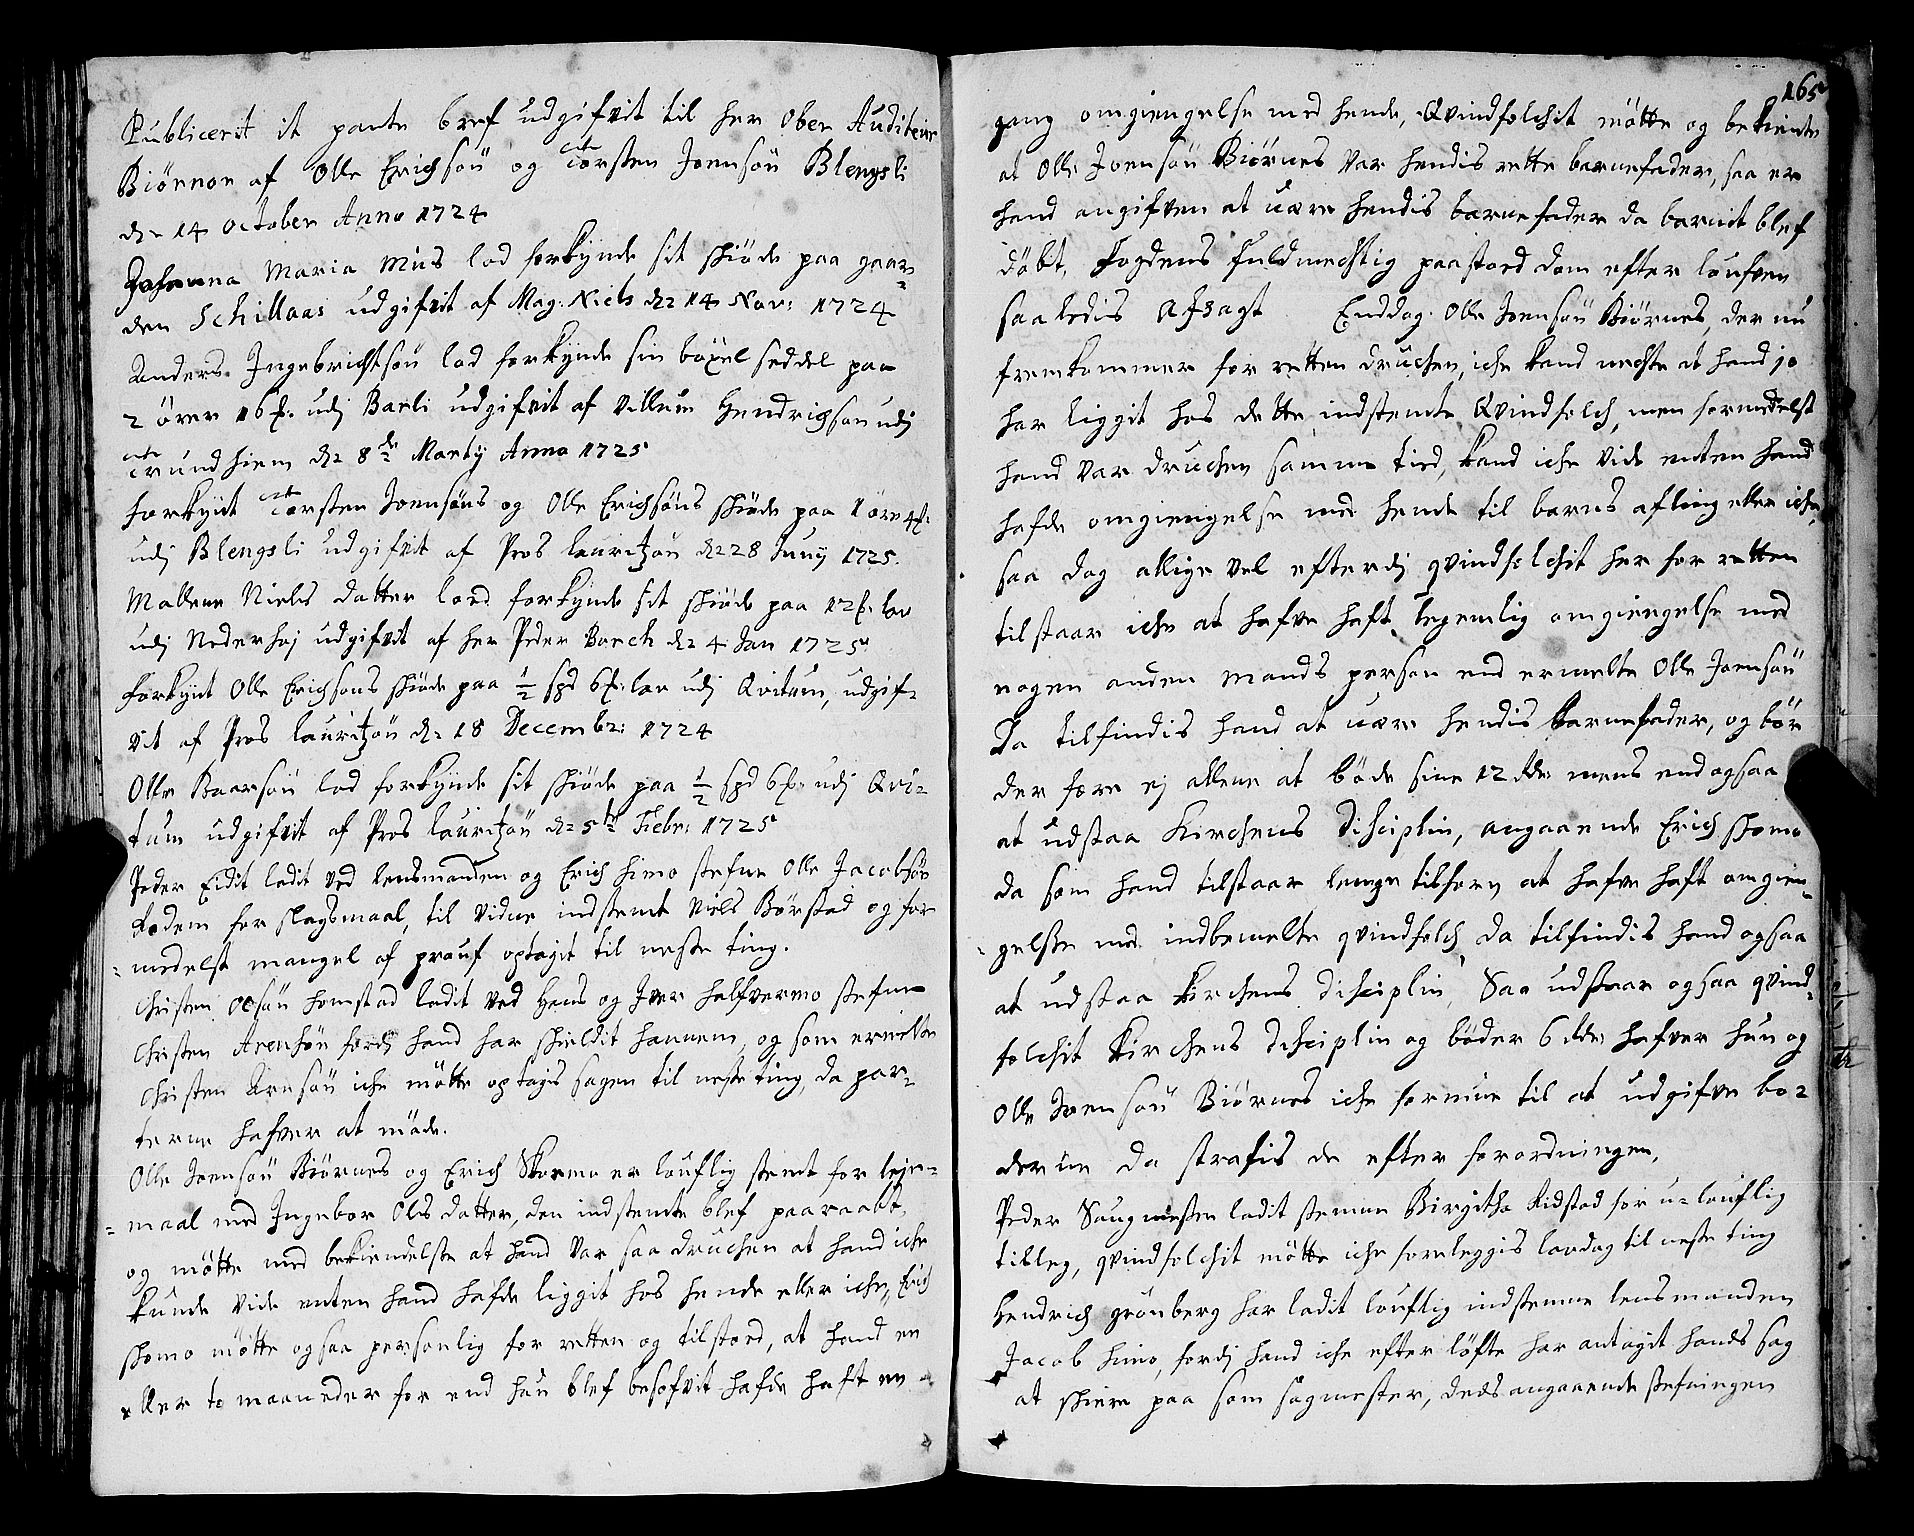 Publicerit it pante bref udgifvit til her Ober Auditeur
Biørnor af Olle Erichsøn og Torsten Joensøn Blengsli
d: 14 October Anno 1724
Johanna Maria Mus lod forkynde sit skiøde paa gaar-
den Schillaas udgifvit af Mag: Niels d: 14 Nov: 1724
Anders Ingebrichtsøn lod forkynde sin böxel seddel paa
2 ører 16 udj Barli udgifvit af Villum Hendrichsøn udj
Trundhiem d: 8de Martij Anno 1725
forkynt Torsten Joensøns og Olle Erichsøns skiøde paa 1 øre 4
udj Blengsli udgifvit af Pros lauritzøn d: 28 Junij 1725.
Mallene Niels datter lood forkynde sit skiøde paa 12 lav
udj Nederhøj udgifvit af her Peder Borch d: 4 Jan 1725
forkynt Olle Erichsøns skiøde paa ½ spd 6 lav udj Qvitum, udgif-
vit af Pros lauritzøn d: 18 Decembr: 1724
Olle Baarsøn lod forkynde sit skiøde paa ½ spd 6 udj Qvi-
tum udgifvit af Pros lauritzøn d: 5te Febr: 1725
Peder Eidit ladit ved lensmanden og Erich himo stefne Olle Jacobsøn
Rodem for slagsmaal, til vidne indstemt Niels Børstad og for
medelst mangel af prouf optagit til neste ting.
Christen Olsøn homstad ladit ved Hans og Iver halfvermo stefne
Christen Arensøn fordj hand har skieldit hannem, og som ermelte
Christen Arnsøn iche møtte optagis sagen til neste ting, da par-
terne hafver at møde.
Olle Joensøn Biørnes og Erich Skomo er louflig stemt for leje-
maal med Ingebor Ols datter, den indstemte blef paaraabt,
og møtte med bekiendelse at hand var saa druchen at hand iche
kunde vide enten hand hafde liggit hos hende eller iche, Erich
skomo møtte ogsaa personlig for retten og tilstoed, at hand en
eller to maaneder for end hun blef besofvit hafde haft en
165
gang omgiengelse med hende, Qvindfolchit møtte og bekiente
at Olle Joensøn Biørnes var hendis rette barnefader, saa er
hand angifven at være hendis barnefader da barnit blef
døbt, Fogdens fuldmechtig paastoed dom efter loufven
saaledis afsagt Enddog Olle Joensøn Biørnes, der nu
fremkommer for retten druchen, iche kand nechte at hand jo
har liggit hos dette indstemte Qvindfolch, men formedelst
hand var druchen samme tied, kand iche vide enten hand
hafde omgiengelse med hende til barns afling eller iche,
saa dog allige vel efterdj qvindfolchit her for retten
tilstaar iche at hafve haft legemlig omgiengelse med
nogen anden mands person end ermelte Olle Joensøn
Da tilfindis hand at være hendis barnefader, og bør
der fore ej allene at bøde sine 12 rdr: mens end ogsaa
at udstaa Kirchens Disciplin, angaaende Erich skomo
da som hand tilstaar lenge tilforn at hafve haft omgien-
gelse med indbemelte qvindfolch, da tilfindis hand ogsaa
at udstaa Kirchens Disciplin, Saa udstaar ogsaa qvind-
folchit Kirchens Disciplin og bøder 6 rdr: hafver hun og
Olle Joensøn Biørnes iche formue til at udgifve bø-
derne da strafis de efter forordningen,
Peder Saugmesten ladit stemne Birgitha Kidstad for u-louflig
tilleg, qvindfolchit møtte iche forelegges lavdag til neste ting
Hendrich grønberg har ladit louflig indstemne lensmanden
Jacob himo, fordj hand iche efter løfte har antagit hands sag
at skiere paa som sagmester, dends angaaende stefningen